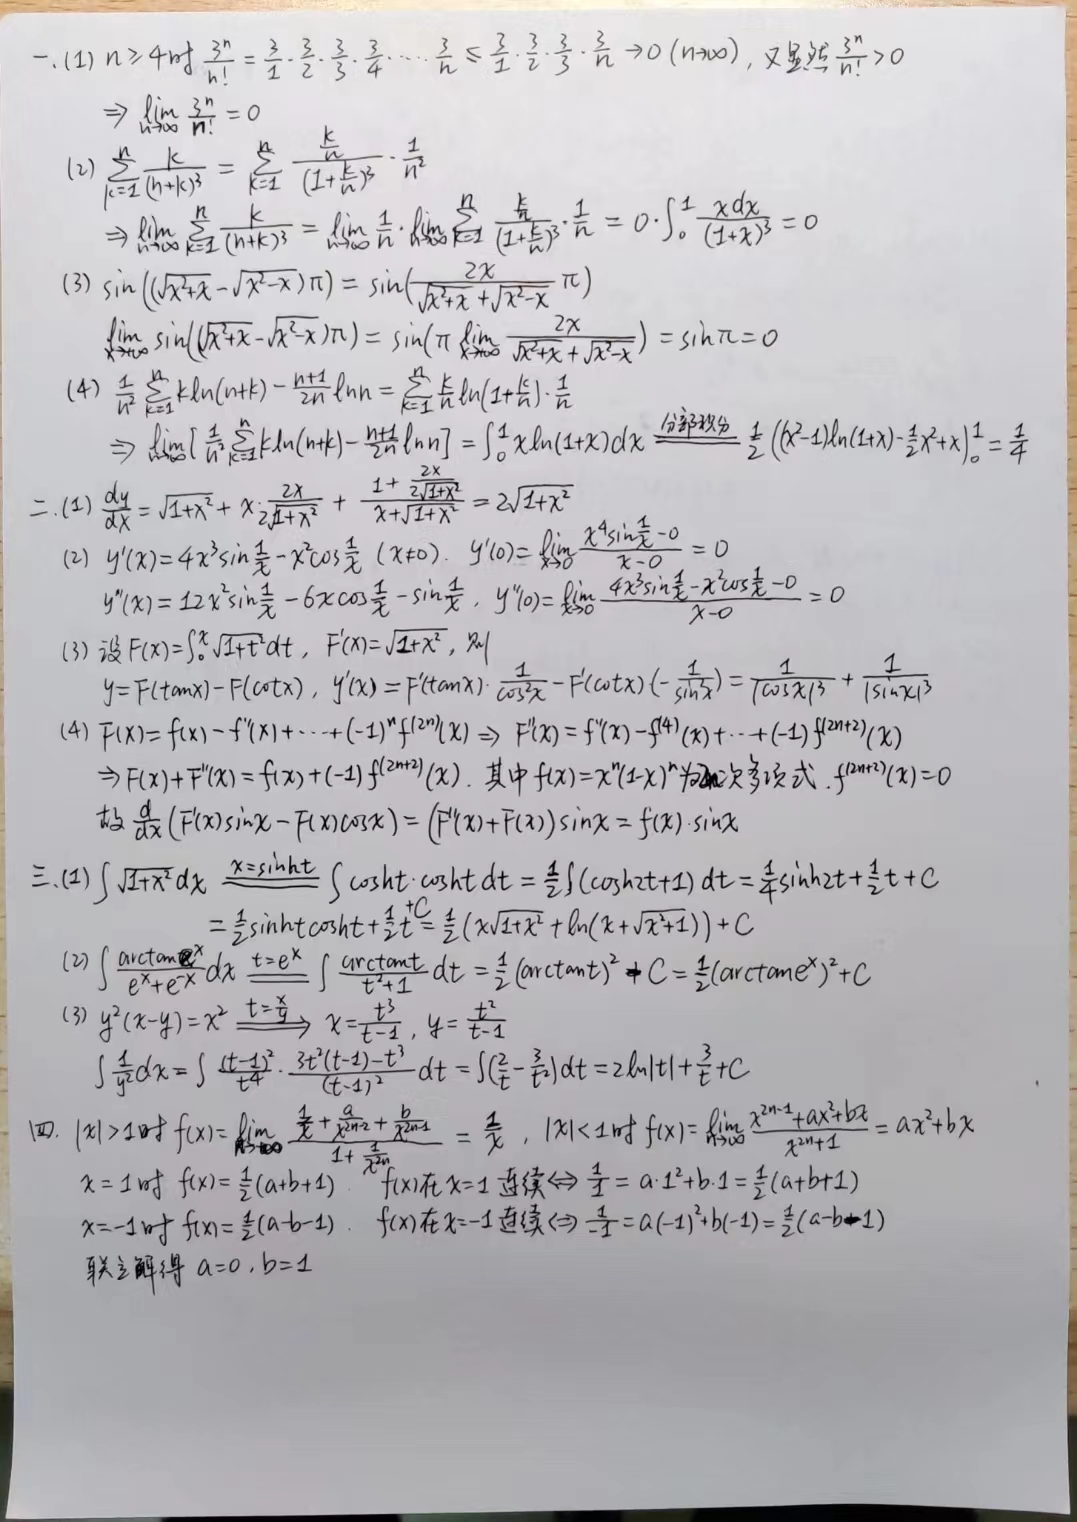 一.(1) n≥4时 3ⁿ/n! = 3/1·3/2·3/3·3/4·⋯·3/n ≤ 3/1·3/2·3/3·3/n →0 (n→∞), 又显然 3ⁿ/n! >0
⇒ lim_{n→∞} 3ⁿ/n! = 0
(2) ∑_{k=1}^{n} k/(n+k)³ = ∑_{k=1}^{n} (k/n)/(1+k/n)³ · 1/n²
⇒ lim_{n→∞} ∑_{k=1}^{n} k/(n+k)³ = lim_{n→∞} 1/n · lim_{n→∞} ∑_{k=1}^{n} (k/n)/(1+k/n)³ · 1/n = 0·∫₀¹ xdx/(1+x)³ = 0
(3) sin((√(x²+x)-√(x²-x))π) = sin(2x/(√(x²+x)+√(x²-x)) π)
lim_{x→+∞} sin((√(x²+x)-√(x²-x))π) = sin(π lim_{x→+∞} 2x/(√(x²+x)+√(x²-x))) = sinπ=0
(4) 1/n² ∑_{k=1}^{n} kln(n+k) - (n+1)/(2n) lnn = ∑_{k=1}^{n} k/n ln(1+k/n)·1/n
⇒ lim_{n→∞}[1/n² ∑_{k=1}^{n} kln(n+k) - (n+1)/(2n) lnn] = ∫₀¹ xln(1+x)dx 分部积分= 1/2((x²-1)ln(1+x)-1/2x²+x)₀¹ = 1/4
二.(1) dy/dx = √(1+x²) + x·2x/(2√(1+x²)) + (1+2x/(2√(1+x²)))/(x+√(1+x²)) = 2√(1+x²)
(2) y'(x)=4x³sin1/x - x²cos1/x (x≠0). y'(0)=lim_{x→0} (x⁴sin1/x-0)/(x-0) = 0
y''(x)=12x²sin1/x - 6xcos1/x - sin1/x, y''(0)=lim_{x→0} (4x³sin1/x-x²cos1/x-0)/(x-0) = 0
(3) 设F(x)=∫₀ˣ√(1+t²)dt, F'(x)=√(1+x²), 则
y=F(tanx)-F(cotx), y'(x)=F'(tanx)·1/cos²x - F'(cotx)(-1/sin²x) = 1/|cosx|³ + 1/|sinx|³
(4) F(x)=f(x)-f''(x)+⋯+(-1)ⁿf⁽²ⁿ⁾(x) ⇒ F''(x)=f''(x)-f⁽⁴⁾(x)+⋯+(-1)f⁽²ⁿ⁺²⁾(x)
⇒ F(x)+F''(x)=f(x)+(-1)f⁽²ⁿ⁺²⁾(x). 其中f(x)=xⁿ(1-x)ⁿ为2n次多项式. f⁽²ⁿ⁺²⁾(x)=0
故 d/dx(F'(x)sinx-F(x)cosx)=(F''(x)+F(x))sinx=f(x)·sinx
三.(1) ∫√(1+x²)dx x=sinht= ∫cosht·coshtdt = 1/2∫(cosh2t+1)dt = 1/4sinh2t+1/2t+C
= 1/2sinhtcosht+1/2t+C = 1/2(x√(1+x²)+ln(x+√(x²+1)))+C
(2) ∫ arctaneˣ/(eˣ+e⁻ˣ) dx t=eˣ= ∫ arctant/(t²+1) dt = 1/2(arctant)²+C = 1/2(arctaneˣ)²+C
(3) y²(x-y)=x² t=x/y ⇒ x=t³/(t-1), y=t²/(t-1)
∫1/y² dx = ∫ (t-1)²/t⁴ · (3t²(t-1)-t³)/(t-1)² dt = ∫(2/t-3/t²)dt = 2ln|t|+3/t+C
四. |x|>1时 f(x)=lim_{n→∞} (1/x+a/x²ⁿ⁻²+b/x²ⁿ⁻¹)/(1+1/x²ⁿ) = 1/x, |x|<1时 f(x)=lim_{n→∞} (x²ⁿ⁻¹+ax²+bx)/(x²ⁿ+1) = ax²+bx
x=1时 f(x)=1/2(a+b+1). f(x)在x=1连续⇔ 1/1=a·1²+b·1=1/2(a+b+1)
x=-1时 f(x)=1/2(a-b-1). f(x)在x=-1连续⇔ 1/-1=a(-1)²+b(-1)=1/2(a-b-1)
联立解得 a=0, b=1